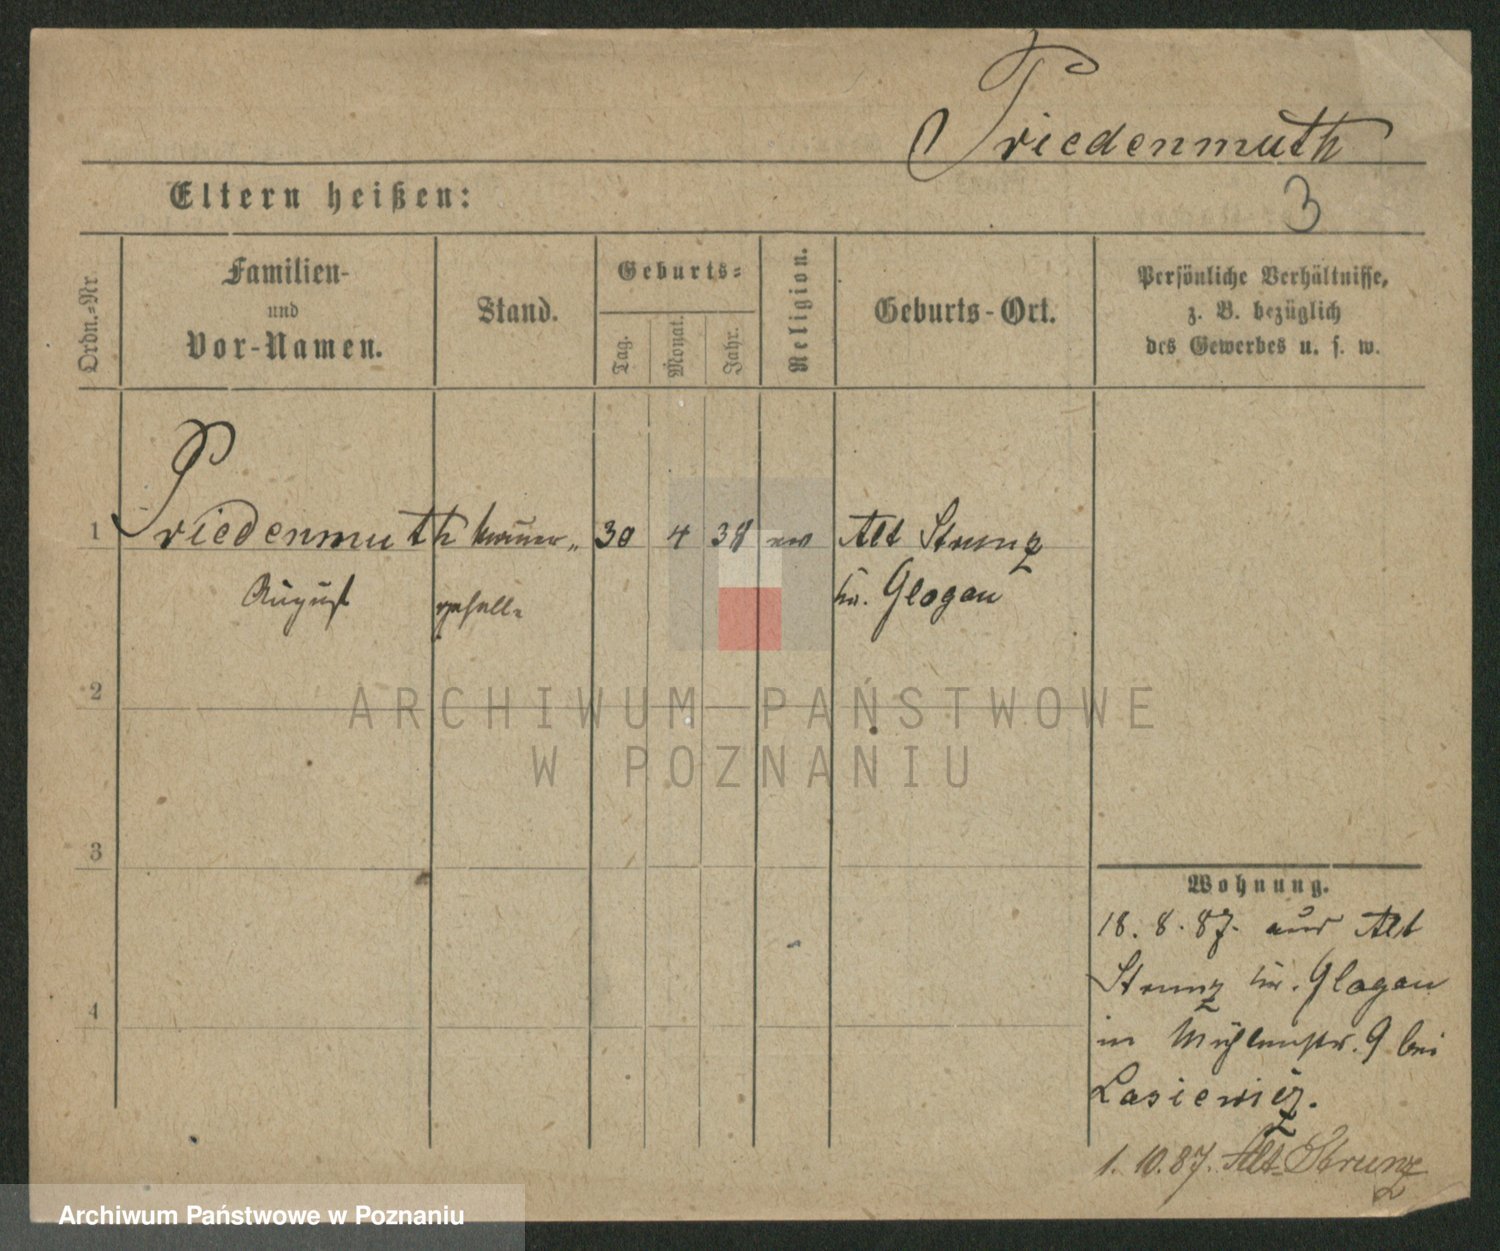 Friedenmuth
3
Eltern heißen:
Ordn.=Nr
Familien-
und
Vor-Namen.
Stand.
Geburts=
Tag.
Monat.
Jahr.
Religion.
Geburts-Ort.
Persönliche Verhältnisse,
z. B. bezüglich
des Gewerbes u. s. w.
1 Priedemuth Maurer= 30 4 38 ev Alt Strunz
August gesell= Kr. Glogau
2
ARCHIWUM PAŃSTWOWE
W POZNANIU
3
Wohnung.
18. 8. 87. aus Alt
Strunz Kr. Glogau
4
in Mühlenstr. 9 bei
Lasiewicz.
1. 10. 87. Alt Strunz
Archiwum Państwowe w Poznaniu